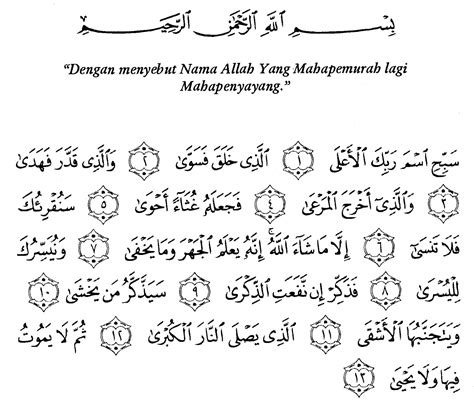 بِسْمِ اللَّهِ الرَّحْمَٰنِ الرَّحِيمِ
“Dengan menyebut Nama Allah Yang Mahapemurah lagi
Mahapenyayang.”
سَبِّحِ اسْمَ رَبِّكَ الْأَعْلَى ١ الَّذِي خَلَقَ فَسَوَّىٰ ٢ وَالَّذِي قَدَّرَ فَهَدَىٰ
٣ وَالَّذِي أَخْرَجَ الْمَرْعَىٰ ٤ فَجَعَلَهُ غُثَاءً أَحْوَىٰ ٥ سَنُقْرِئُكَ
فَلَا تَنسَىٰ ٦ إِلَّا مَا شَاءَ اللَّهُ ۚ إِنَّهُ يَعْلَمُ الْجَهْرَ وَمَا يَخْفَىٰ ٧ وَنُيَسِّرُكَ
لِلْيُسْرَىٰ ٨ فَذَكِّرْ إِن نَّفَعَتِ الذِّكْرَىٰ ٩ سَيَذَّكَّرُ مَن يَخْشَىٰ ١٠
وَيَتَجَنَّبُهَا الْأَشْقَى ١١ الَّذِي يَصْلَى النَّارَ الْكُبْرَىٰ ١٢ ثُمَّ لَا يَمُوتُ
فِيهَا وَلَا يَحْيَىٰ ١٣